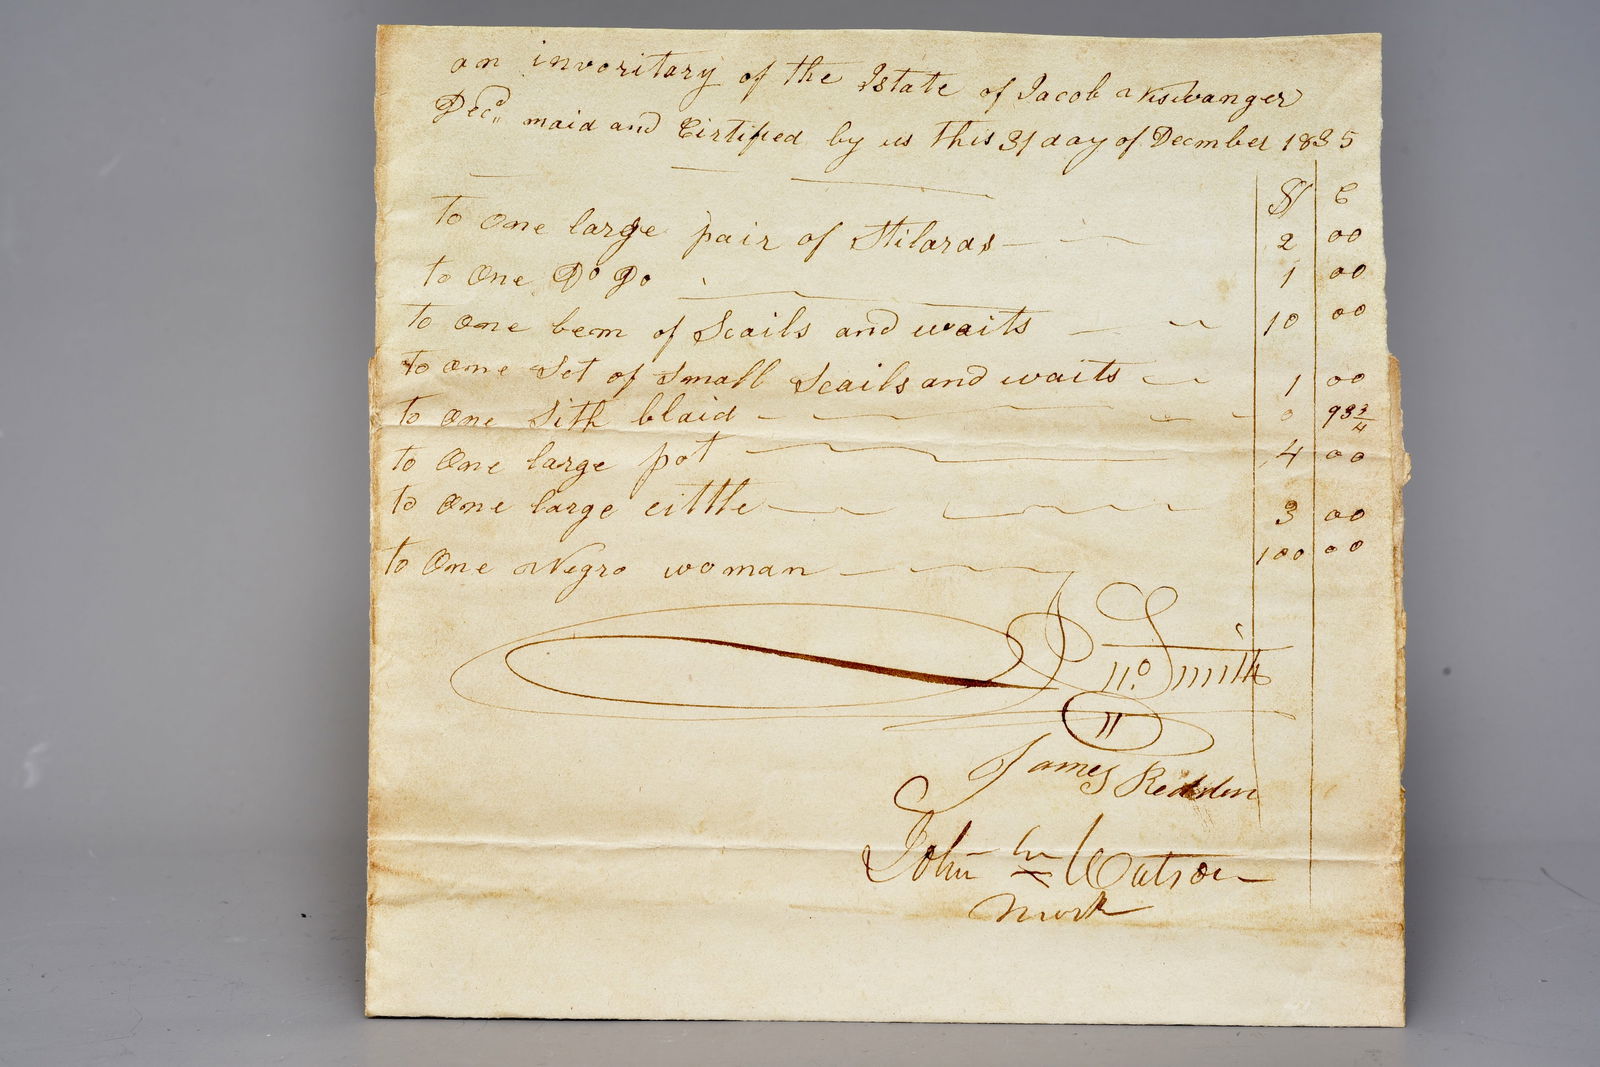 an invoritary of the Istate of Jacob Niswanger
Decd maid and Cirtified by us this 31 day of Decmber 1835
$ C
to One large pair of Stilards 2 00
to One Do Do 1 00
to one bem of Scails and waits 10 00
to one Set of Small Scails and waits 1 00
to One Sith blaid 0 93 3/4
to One large pot 4 00
to One large cittle 3 00
to One Negro woman 100 00
Jno. Smith
James Redden
John his x Watson
mark